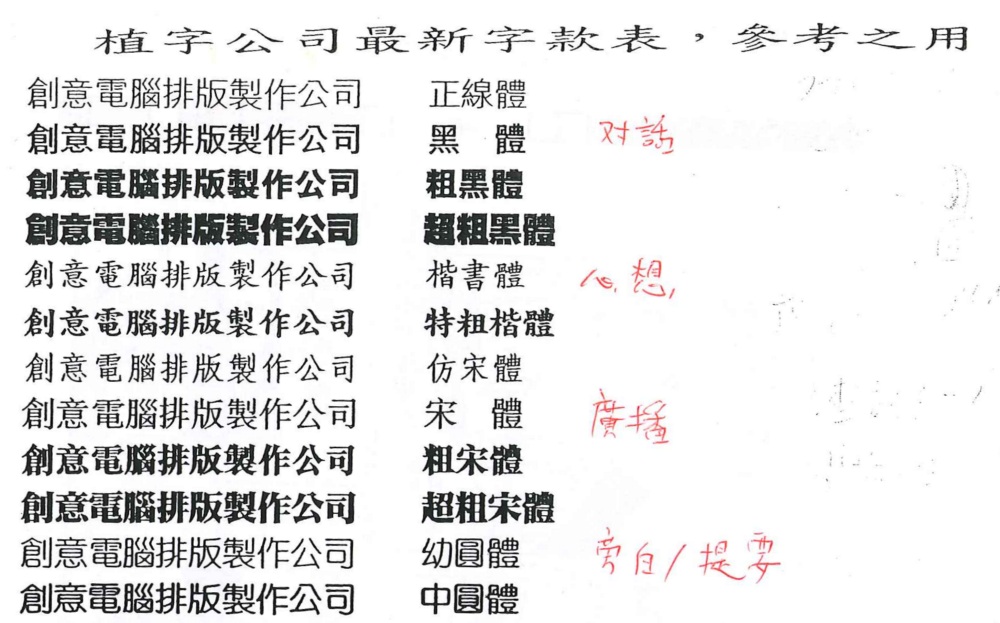 植字公司最新字款表，參考之用
創意電腦排版製作公司 正線體
創意電腦排版製作公司 黑 體 对話
創意電腦排版製作公司 粗黑體
創意電腦排版製作公司 超粗黑體
創意電腦排版製作公司 楷書體 心想
創意電腦排版製作公司 特粗楷體
創意電腦排版製作公司 仿宋體
創意電腦排版製作公司 宋 體 廣播
創意電腦排版製作公司 粗宋體
創意電腦排版製作公司 超粗宋體
創意電腦排版製作公司 幼圓體 旁白/提要
創意電腦排版製作公司 中圓體